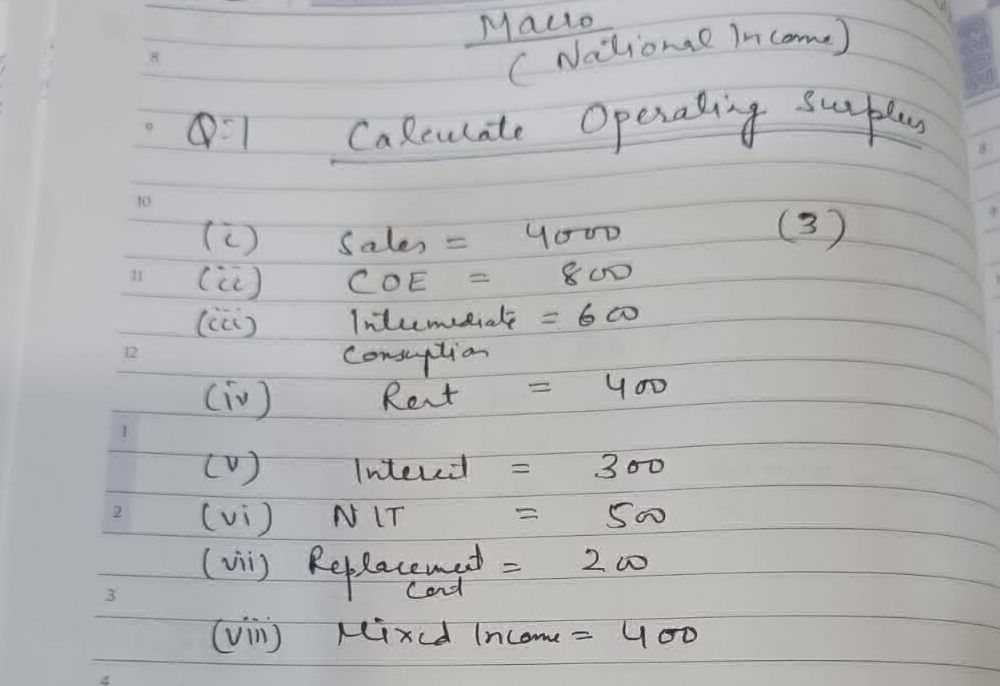 Macro
(National Income)
8
9 Q:1 Calculate Operating Surplus
10
(i) Sales = 4000 (3)
11 (ii) COE = 800
(iii) Intermediate = 600
12 Consuption
(iv) Rent = 400
1
(v) Interest = 300
2 (vi) NIT = 500
(vii) Replacement = 200
3 Cost
(viii) Mixed Income = 400
4